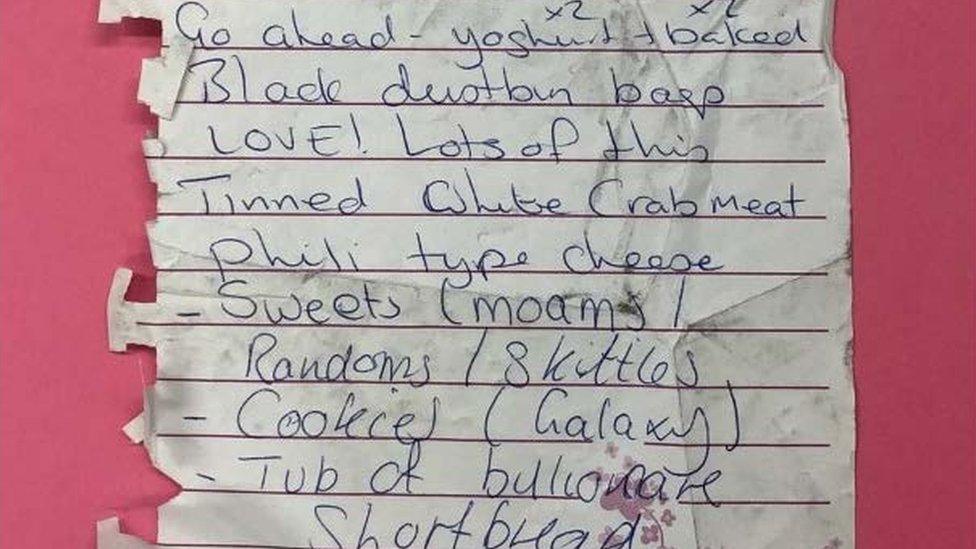 x2 x2
Go ahead - yoghurt + baked
Black dustbin bags
LOVE! Lots of this
Tinned White Crab meat
phili type cheese
- Sweets (moams /
Randoms / Skittles
- Cookies (Galaxy)
- Tub of billionare
Shortbread